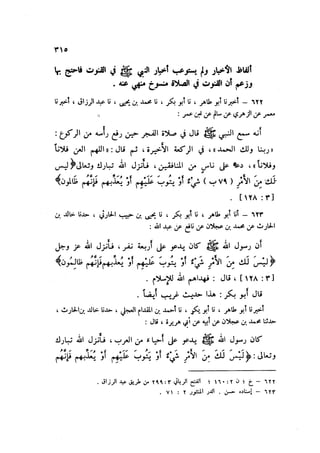 ٣١٥
ألفاظ الأخبار ولم يستوعب أخبار النبي ﷺ في القنوت فاحتج بها
وزعم أن القنوت في الصلاة منسوخ منهي عنه .
٦٢٢ – أخبرنا أبو طاهر ، نا أبو بكر ، نا محمد بن يحيى ، نا عبد الرزاق ، أخبرنا
معمر عن الزهري عن سالم عن ابن عمر :
أنه سمع النبي ﷺ قال في صلاة الفجر حين رفع رأسه من الركوع :
«ربنا ولك الحمد» ، في الركعة الأخيرة ، ثم قال : «اللهم العن فلاناً
وفلاناً» ، دعا على ناس من المنافقين ، فأنزل الله تبارك وتعالى ﴿ليس
لك من الأمر (٧٩ ب) شيء أو يتوب عليهم أو يعذبهم فإنهم ظالمون﴾
[٣ : ١٢٨] .
٦٢٣ – أنا أبو طاهر ، نا أبو بكر ، نا يحيى بن حبيب الحارثي ، حدثنا خالد بن
الحارث عن محمد بن عجلان عن نافع عن عبد الله :
أن رسول الله ﷺ كان يدعو على أربعة نفر ، فأنزل الله عز وجل
﴿ليس لك من الأمر شيء أو يتوب عليهم أو يعذبهم فإنهم ظالمون﴾
[٣ : ١٢٨] ، قال : فهداهم الله للإسلام .
قال أبو بكر : هذا حديث غريب أيضاً .
أخبرنا أبو طاهر ، نا أبو بكر ، نا أحمد بن المقدام العجلي ، حدثنا خالد بن الحارث ،
حدثنا محمد بن عجلان عن أبيه عن أبي هريرة ، قال :
كان رسول الله ﷺ يدعو على أحياء من العرب ، فأنزل الله تبارك
وتعالى : ﴿ليس لك من الأمر شيء أو يتوب عليهم أو يعذبهم فإنهم
٦٢٢ – ن ٢ : ١٦٠ ؛ الفتح الرباني ٣ : ٢٩٩ من طريق عبد الرزاق .
٦٢٣ – إسناده حسن . الدر المنثور ٢ : ٧١ .